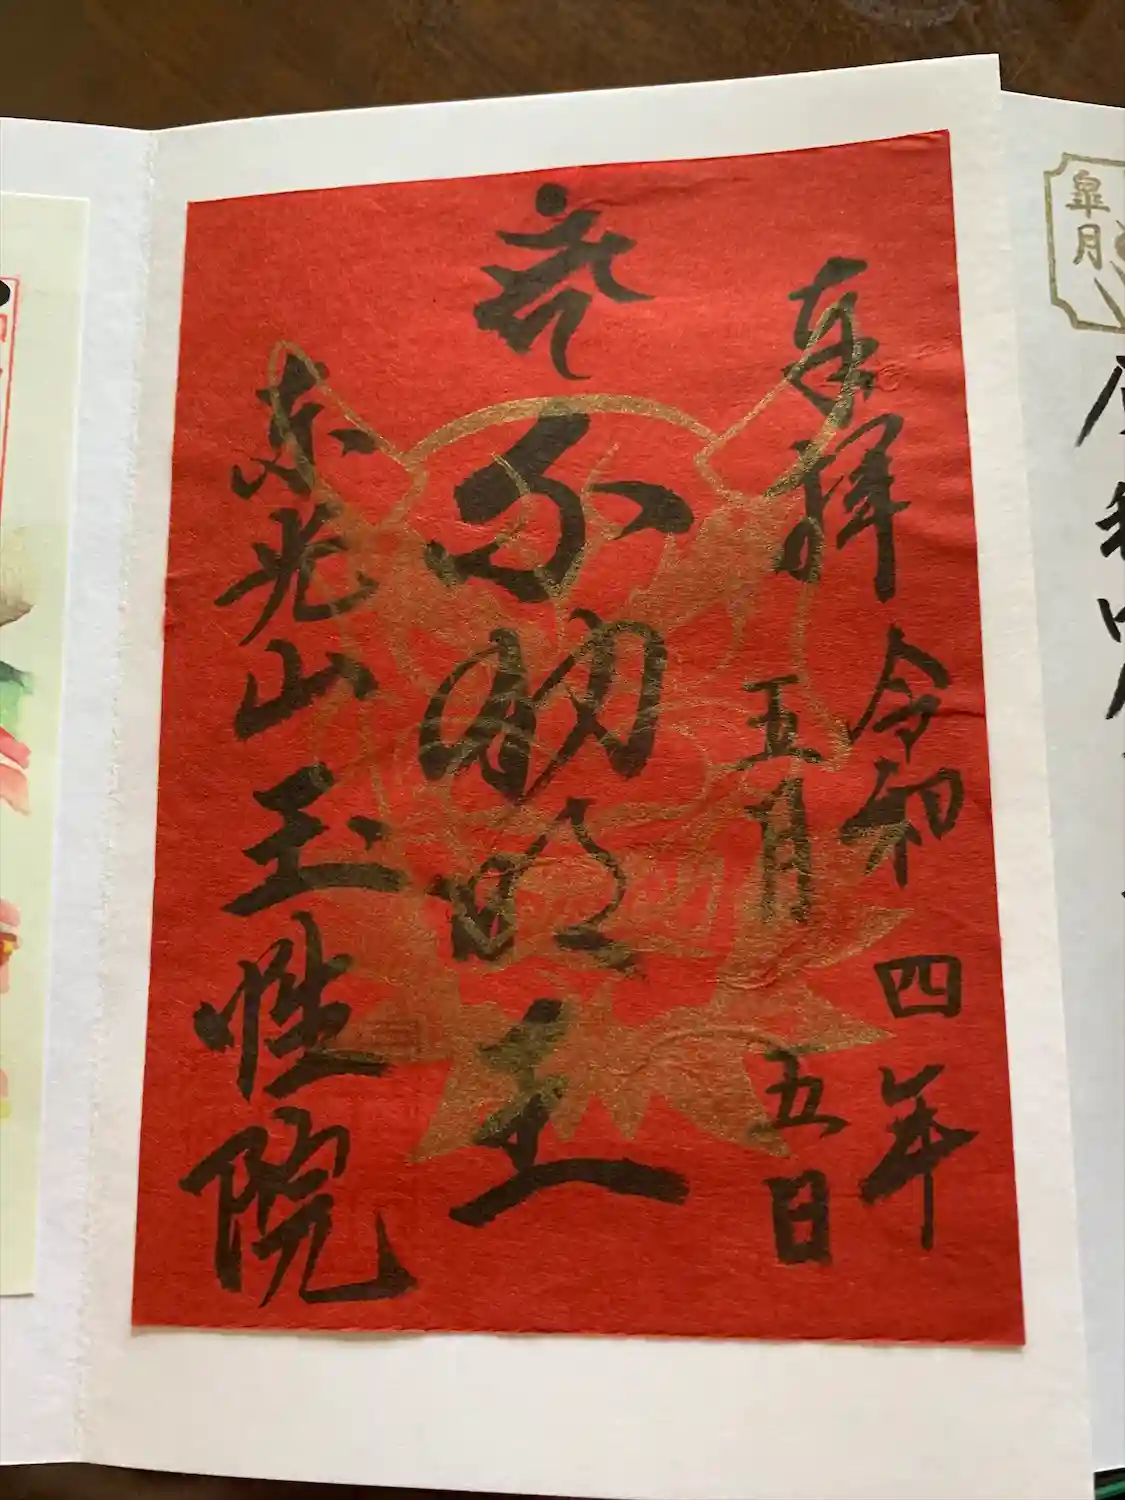 奉拝 令和四年
五月五日
不動明王
東光山玉性院
皐月